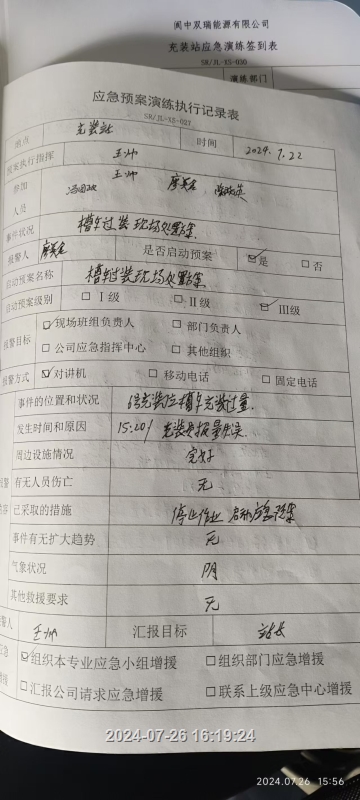 阆中双瑞能源有限公司
充装站应急演练签到表
SR/JL-XS-030
演练部门
应急预案演练执行记录表
SR/JL-XS-027
地点 充装站 时间 2024.7.22
预案执行指挥 王帅
参加人员 王帅
事件状况 槽车过装现场处置方案
报警人 是否启动预案 ☑是 □否
启动预案名称 槽车过装现场处置方案
启动预案级别 □Ⅰ级 □Ⅱ级 ☑Ⅲ级
报警目标 ☑现场班组负责人 □部门负责人
□公司应急指挥中心 □其他组织
报警方式 ☑对讲机 □移动电话 □固定电话
事件的位置和状况 6号充装位槽车充装过量
发生时间和原因 15:20/ 充装
周边设施情况 完好
有无人员伤亡 无
已采取的措施 停止作业 启动应急预案
事件有无扩大趋势 无
气象状况 阴
其他救援要求 无
王帅 汇报目标 站长
☑组织本专业应急小组增援 □组织部门应急增援
□汇报公司请求应急增援 □联系上级应急中心增援
2024-07-26 16:19:24
2024.07.26 15:56